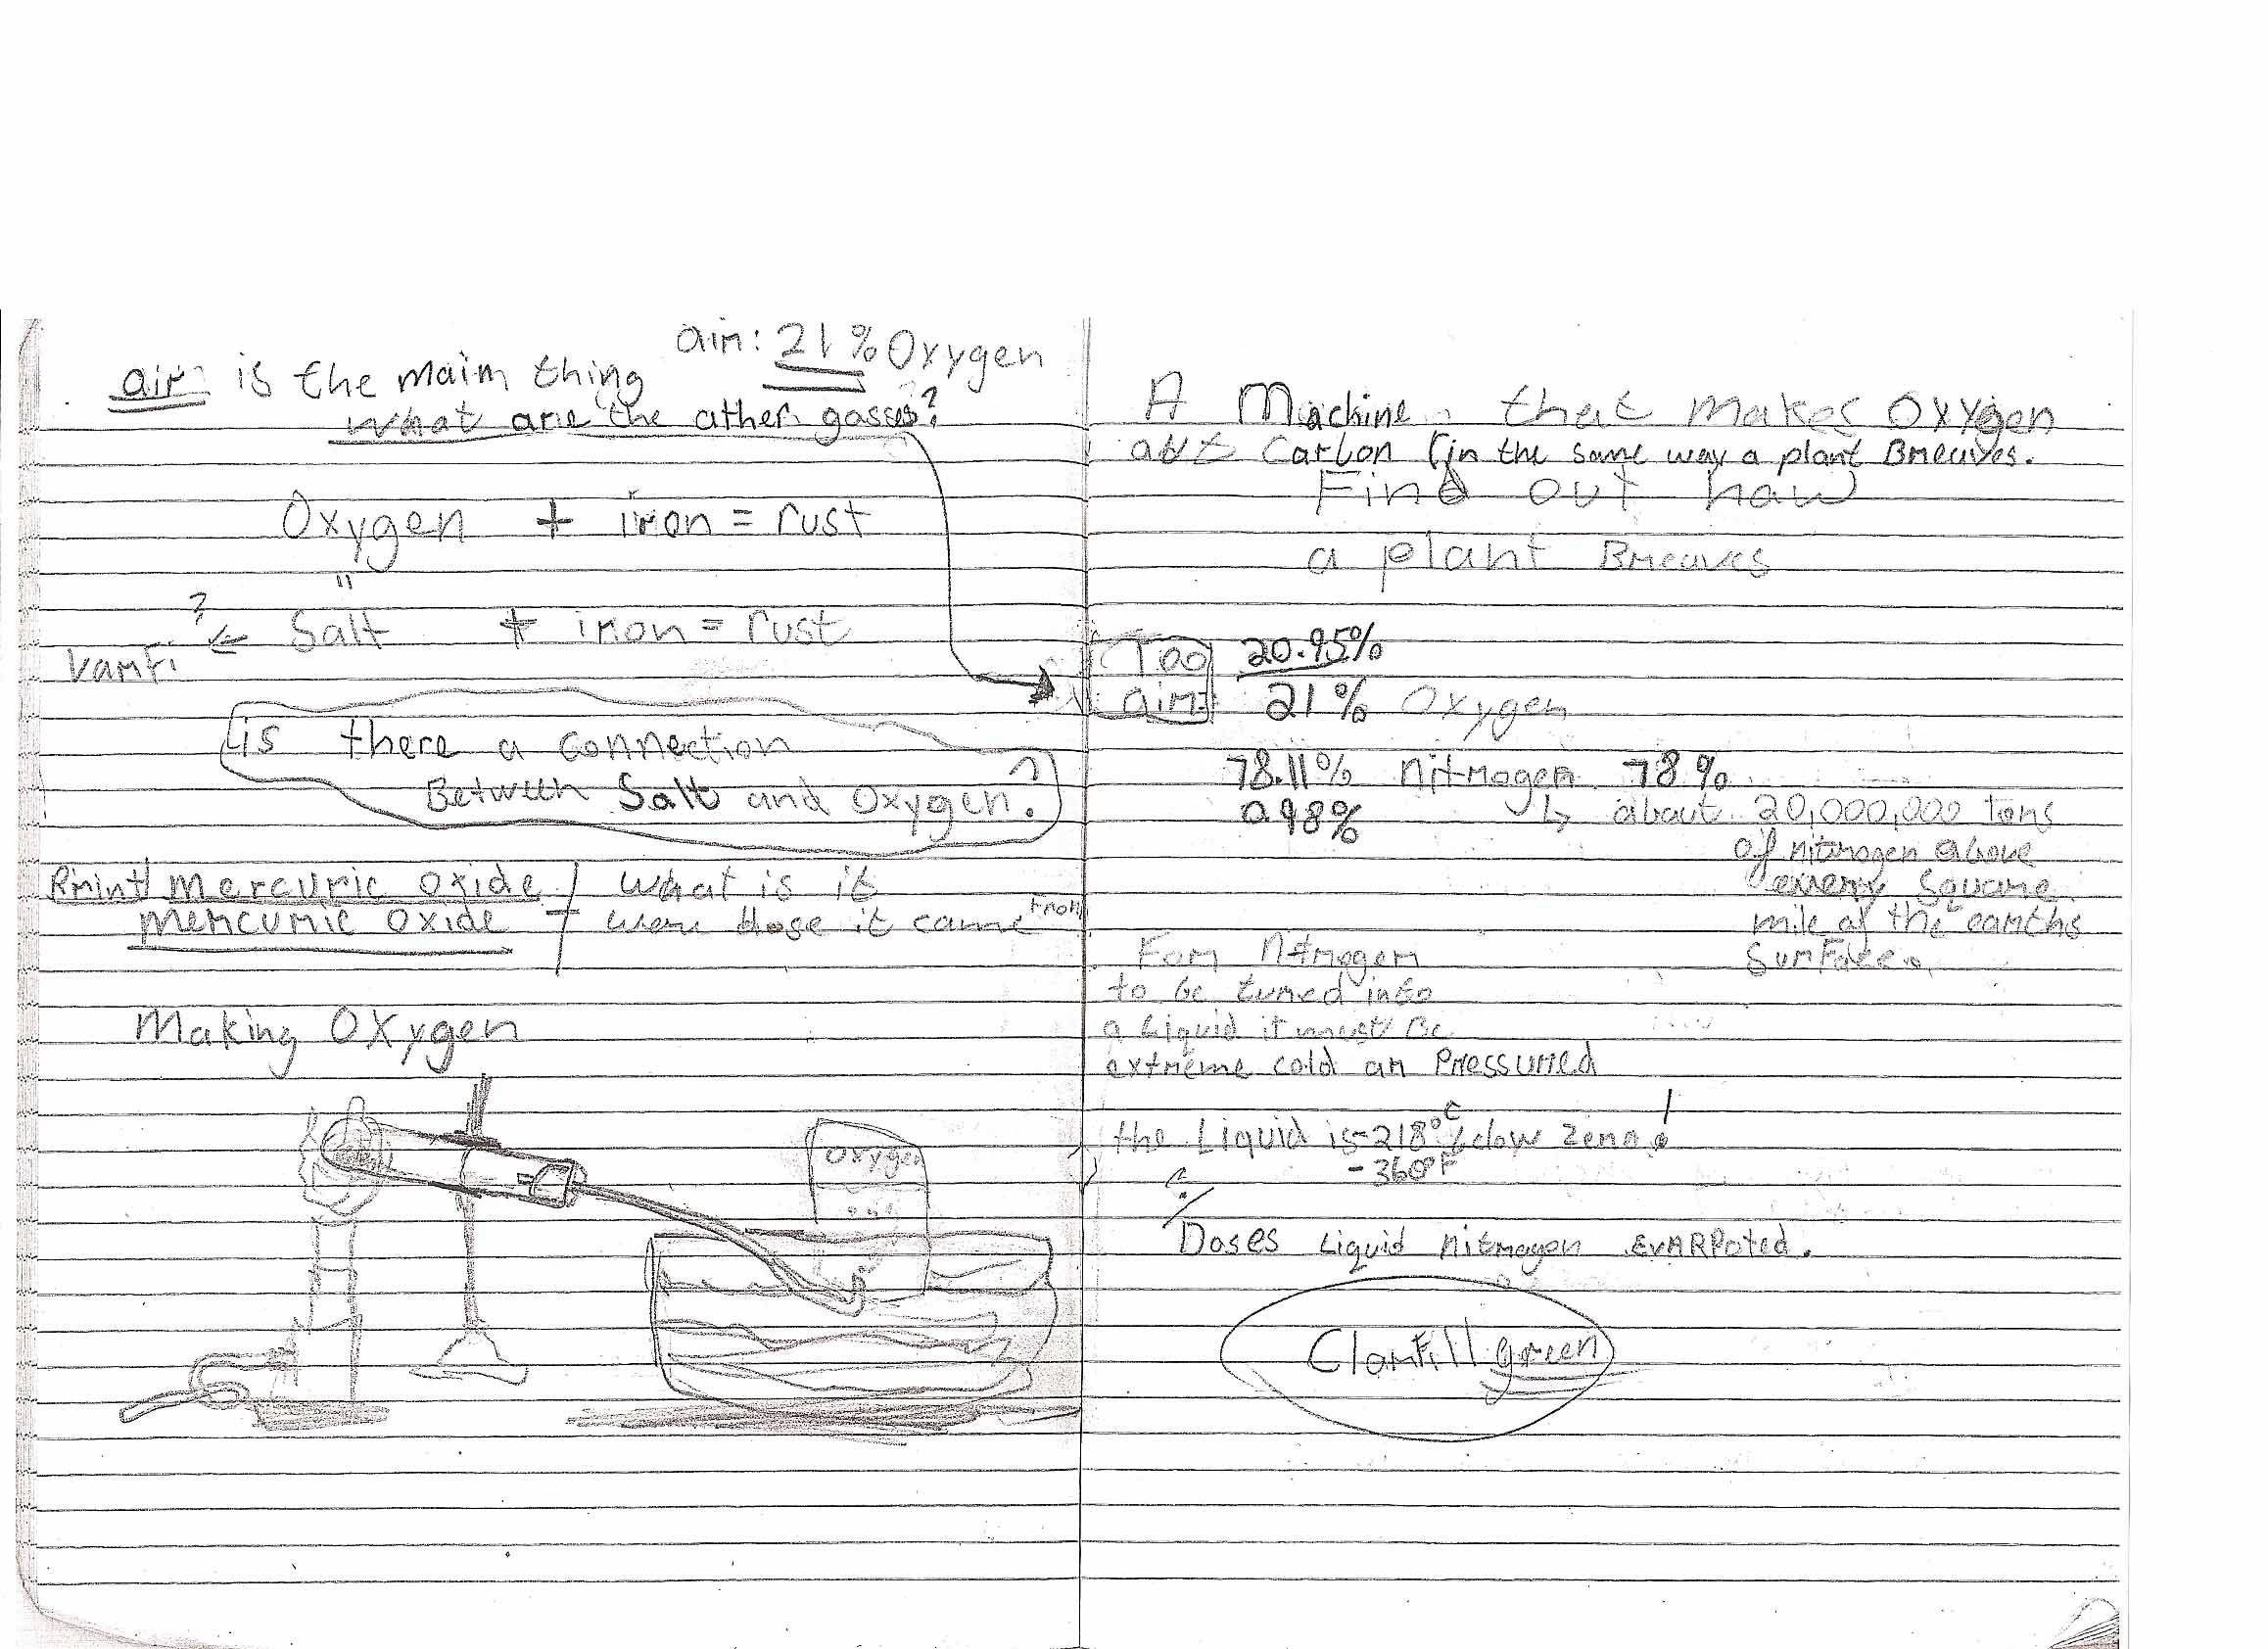 air: 21% Oxygen
air is the maim thing
what are the ather gasses?
Oxygen + iron = rust
"
? ← Salt + iron = rust
varifi
is there a connection
Between Salt and Oxygen. ?
Print mercuric oxide / what is it
mercuric oxide – were dose it came From
Making OXygen
Oxygen
A Machine that makes Oxygen
out Carbon (in the same way a plant Breaves.
Find out haw
a plant Breaves
Too 20.95%
air: 21% Oxygen
78.11% nitrogen 78%
0.98% ↳ about 20,000,000 tons
of nitrogen above
every square
mile of the earths
surface.
For Nitrogen
to be turned into
a liquid it must Be
extreme cold an Pressured
the Liquid is -218°C below zero!
-360°F
?/
Doses Liquid nitrogen EVARPated.
Clorfill green